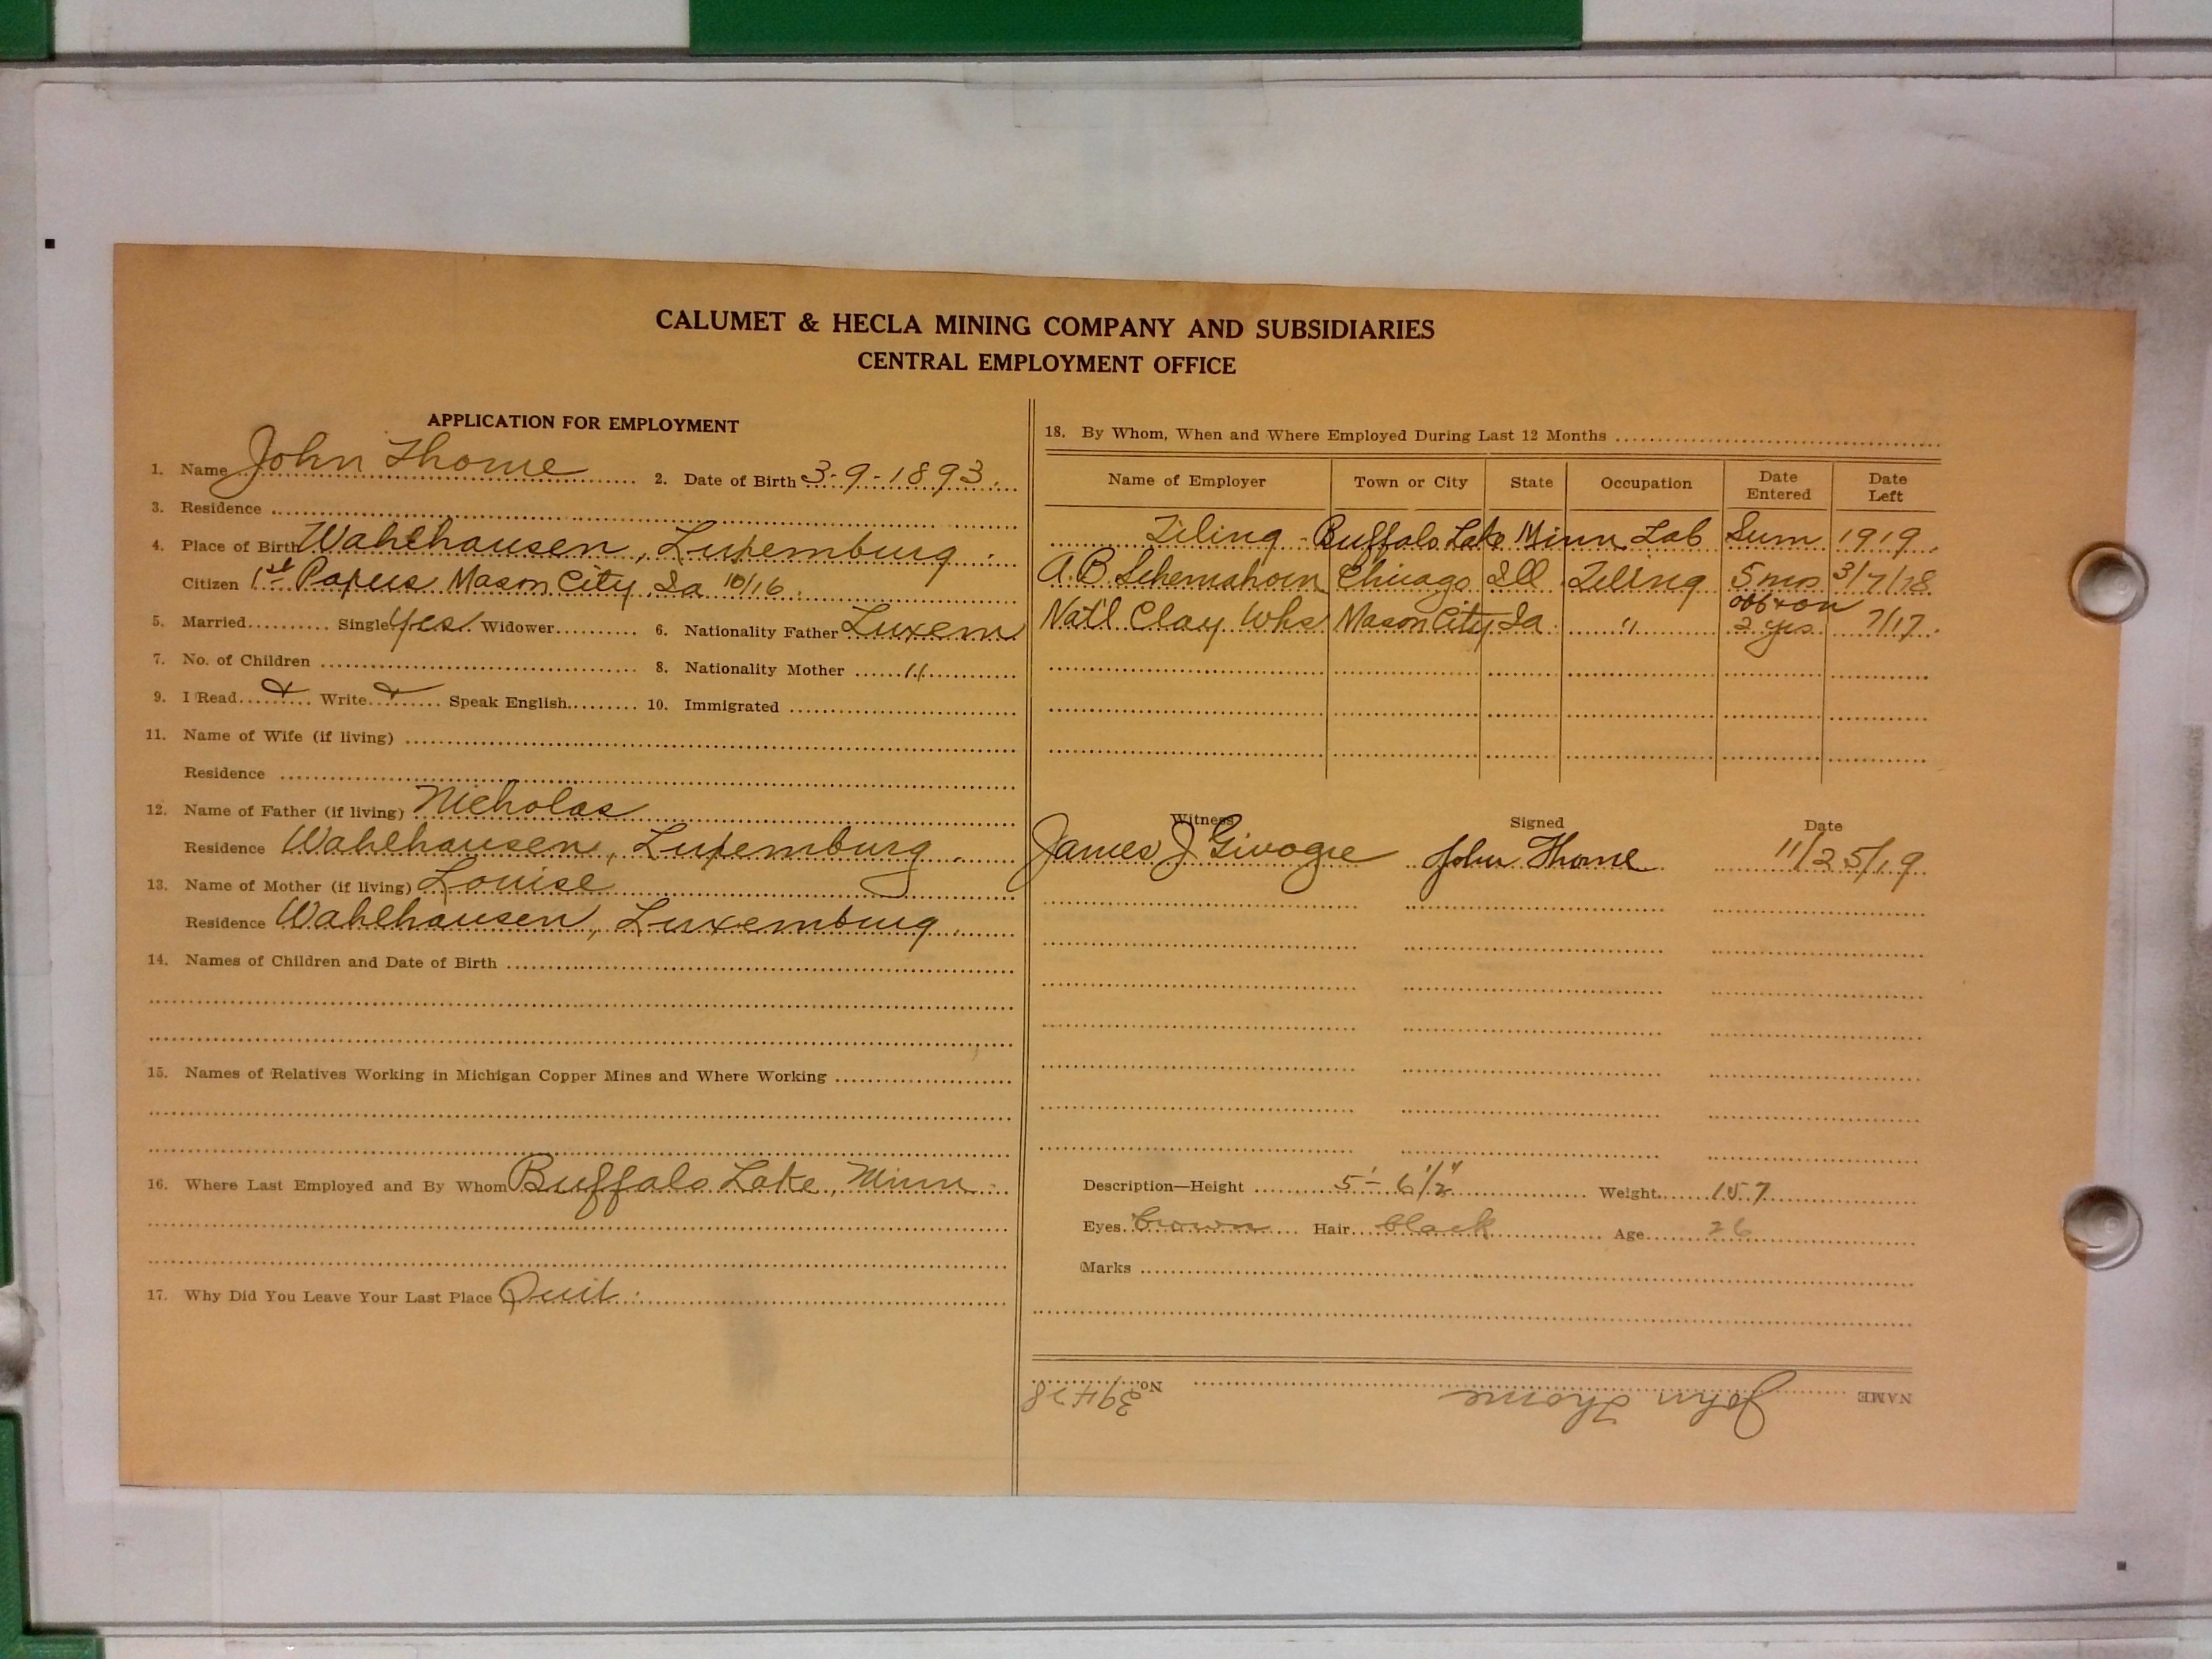 CALUMET & HECLA MINING COMPANY AND SUBSIDIARIES
CENTRAL EMPLOYMENT OFFICE
APPLICATION FOR EMPLOYMENT
1. Name John Thome 2. Date of Birth 3-9-1893
3. Residence
4. Place of Birth Wahlhausen, Luxemburg
Citizen 1st Papers Mason City, Ia 10/16
5. Married Single Yes Widower 6. Nationality Father Luxem
7. No. of Children 8. Nationality Mother "
9. I Read Write Speak English 10. Immigrated
11. Name of Wife (if living)
Residence
12. Name of Father (if living) Nicholas
Residence Wahlhausen, Luxemburg
13. Name of Mother (if living) Louise
Residence Wahlhausen, Luxemburg
14. Names of Children and Date of Birth
15. Names of Relatives Working in Michigan Copper Mines and Where Working
16. Where Last Employed and By Whom Buffalo Lake, Minn
17. Why Did You Leave Your Last Place Quit
18. By Whom, When and Where Employed During Last 12 Months
Name of Employer Town or City State Occupation Date Entered Date Left
Tiling Buffalo Lake Minn Lab Sum 1919
A.B. Chicago Ill Tiling 5 mos 3/7/18
Nat'l Clay Wks Mason City Ia " off & on 2 yrs 7/17
Witness Signed Date
James J John Thome 11/25/19
Description—Height 5'-6 1/2" Weight 157
Eyes brown Hair black Age 26
Marks
NAME John Thome No. 39428